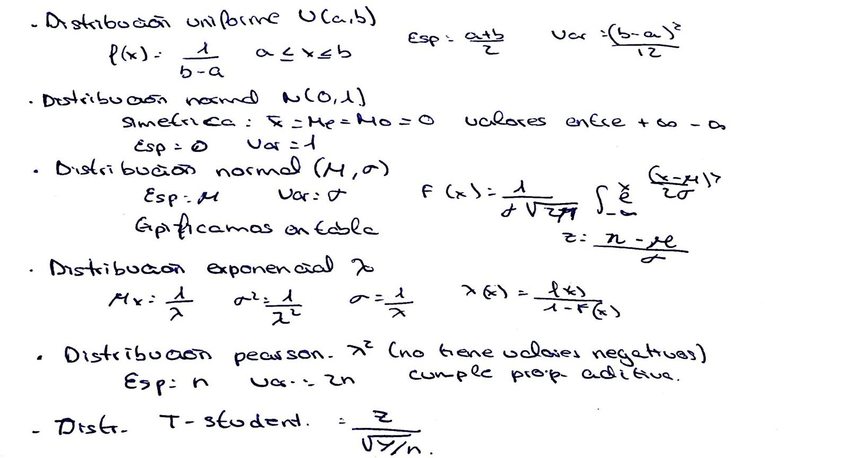 - Distribución uniforme U(a,b)
f(x): 1/(b-a)   a ≤ x ≤ b   Esp: (a+b)/2   Var: (b-a)²/12
· Distribución normal N(0,1)
Simetrica: x̄ = Me = Mo = 0   valores entre +∞ -∞
Esp = 0   Var = 1
· Distribución normal (M, σ)
Esp: M   Var: σ   F(x) = 1/(σ√2π) ∫_{-∞}^{x} e^{-(x-M)²/2σ}
Tipificamos en tabla   z: (n-M)/σ
· Distribución exponencial λ
Mx: 1/λ   σ²: 1/λ²   σ = 1/λ   λ(x) = f(x)/(1-F(x))
· Distribución pearson. λ² (no tiene valores negativos)
Esp: n   Var: 2n   cumple prop. aditiva.
- Distr. T-student. = z/√(Y/n).